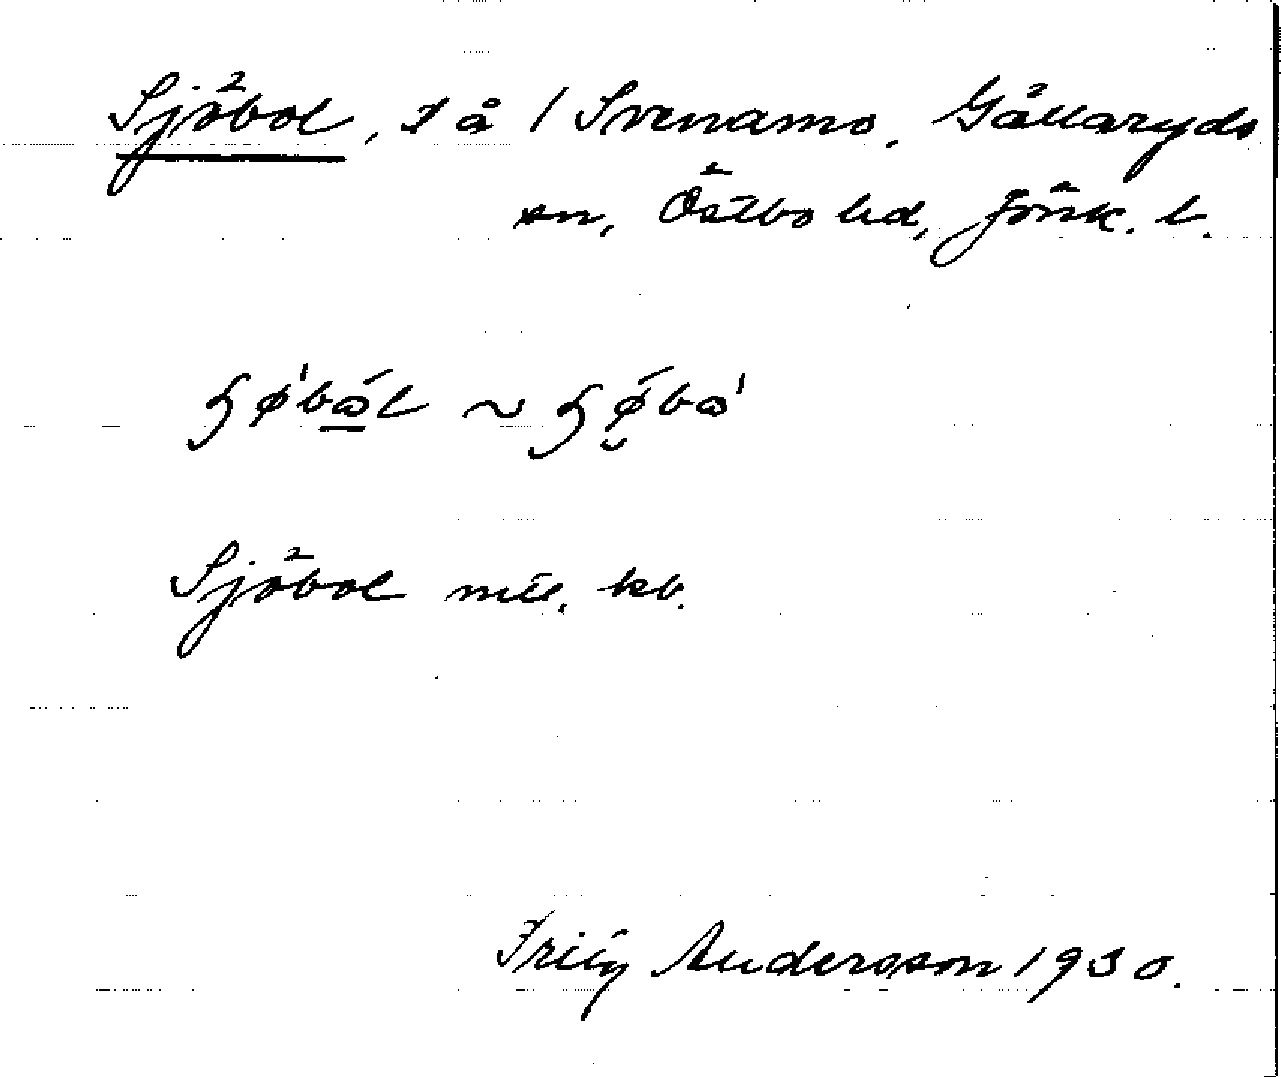 Sjöbol, t å 1 Svenamo. Gällaryds
sn, Östbo hd, Jönk. l.
Sjöbol mtl. kb.
Fritz Andersson 1930.